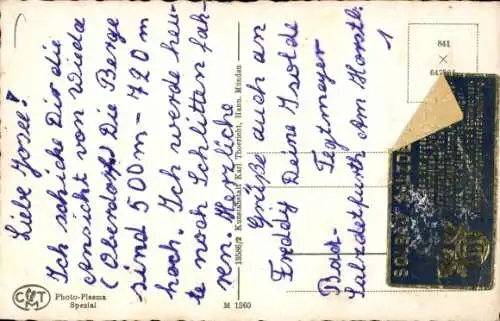 Liebe Josee!
Ich schicke Dir die
Ansicht von Wieda
(Oberdorf) Die Berge
sind 500 m - 720 m
hoch. Ich werde heu-
te noch Schlitten fah-
ren. Herzliche
Grüße auch an
Freddy Deine Isolde
Tegtmeyer
Salzdetfurth Am Horstl.
1
841
×
Kunstanstalt Karl Thoericht, Hann. Münden
18586/2
M 1560
CMT
Photo-Plasma
Spezial